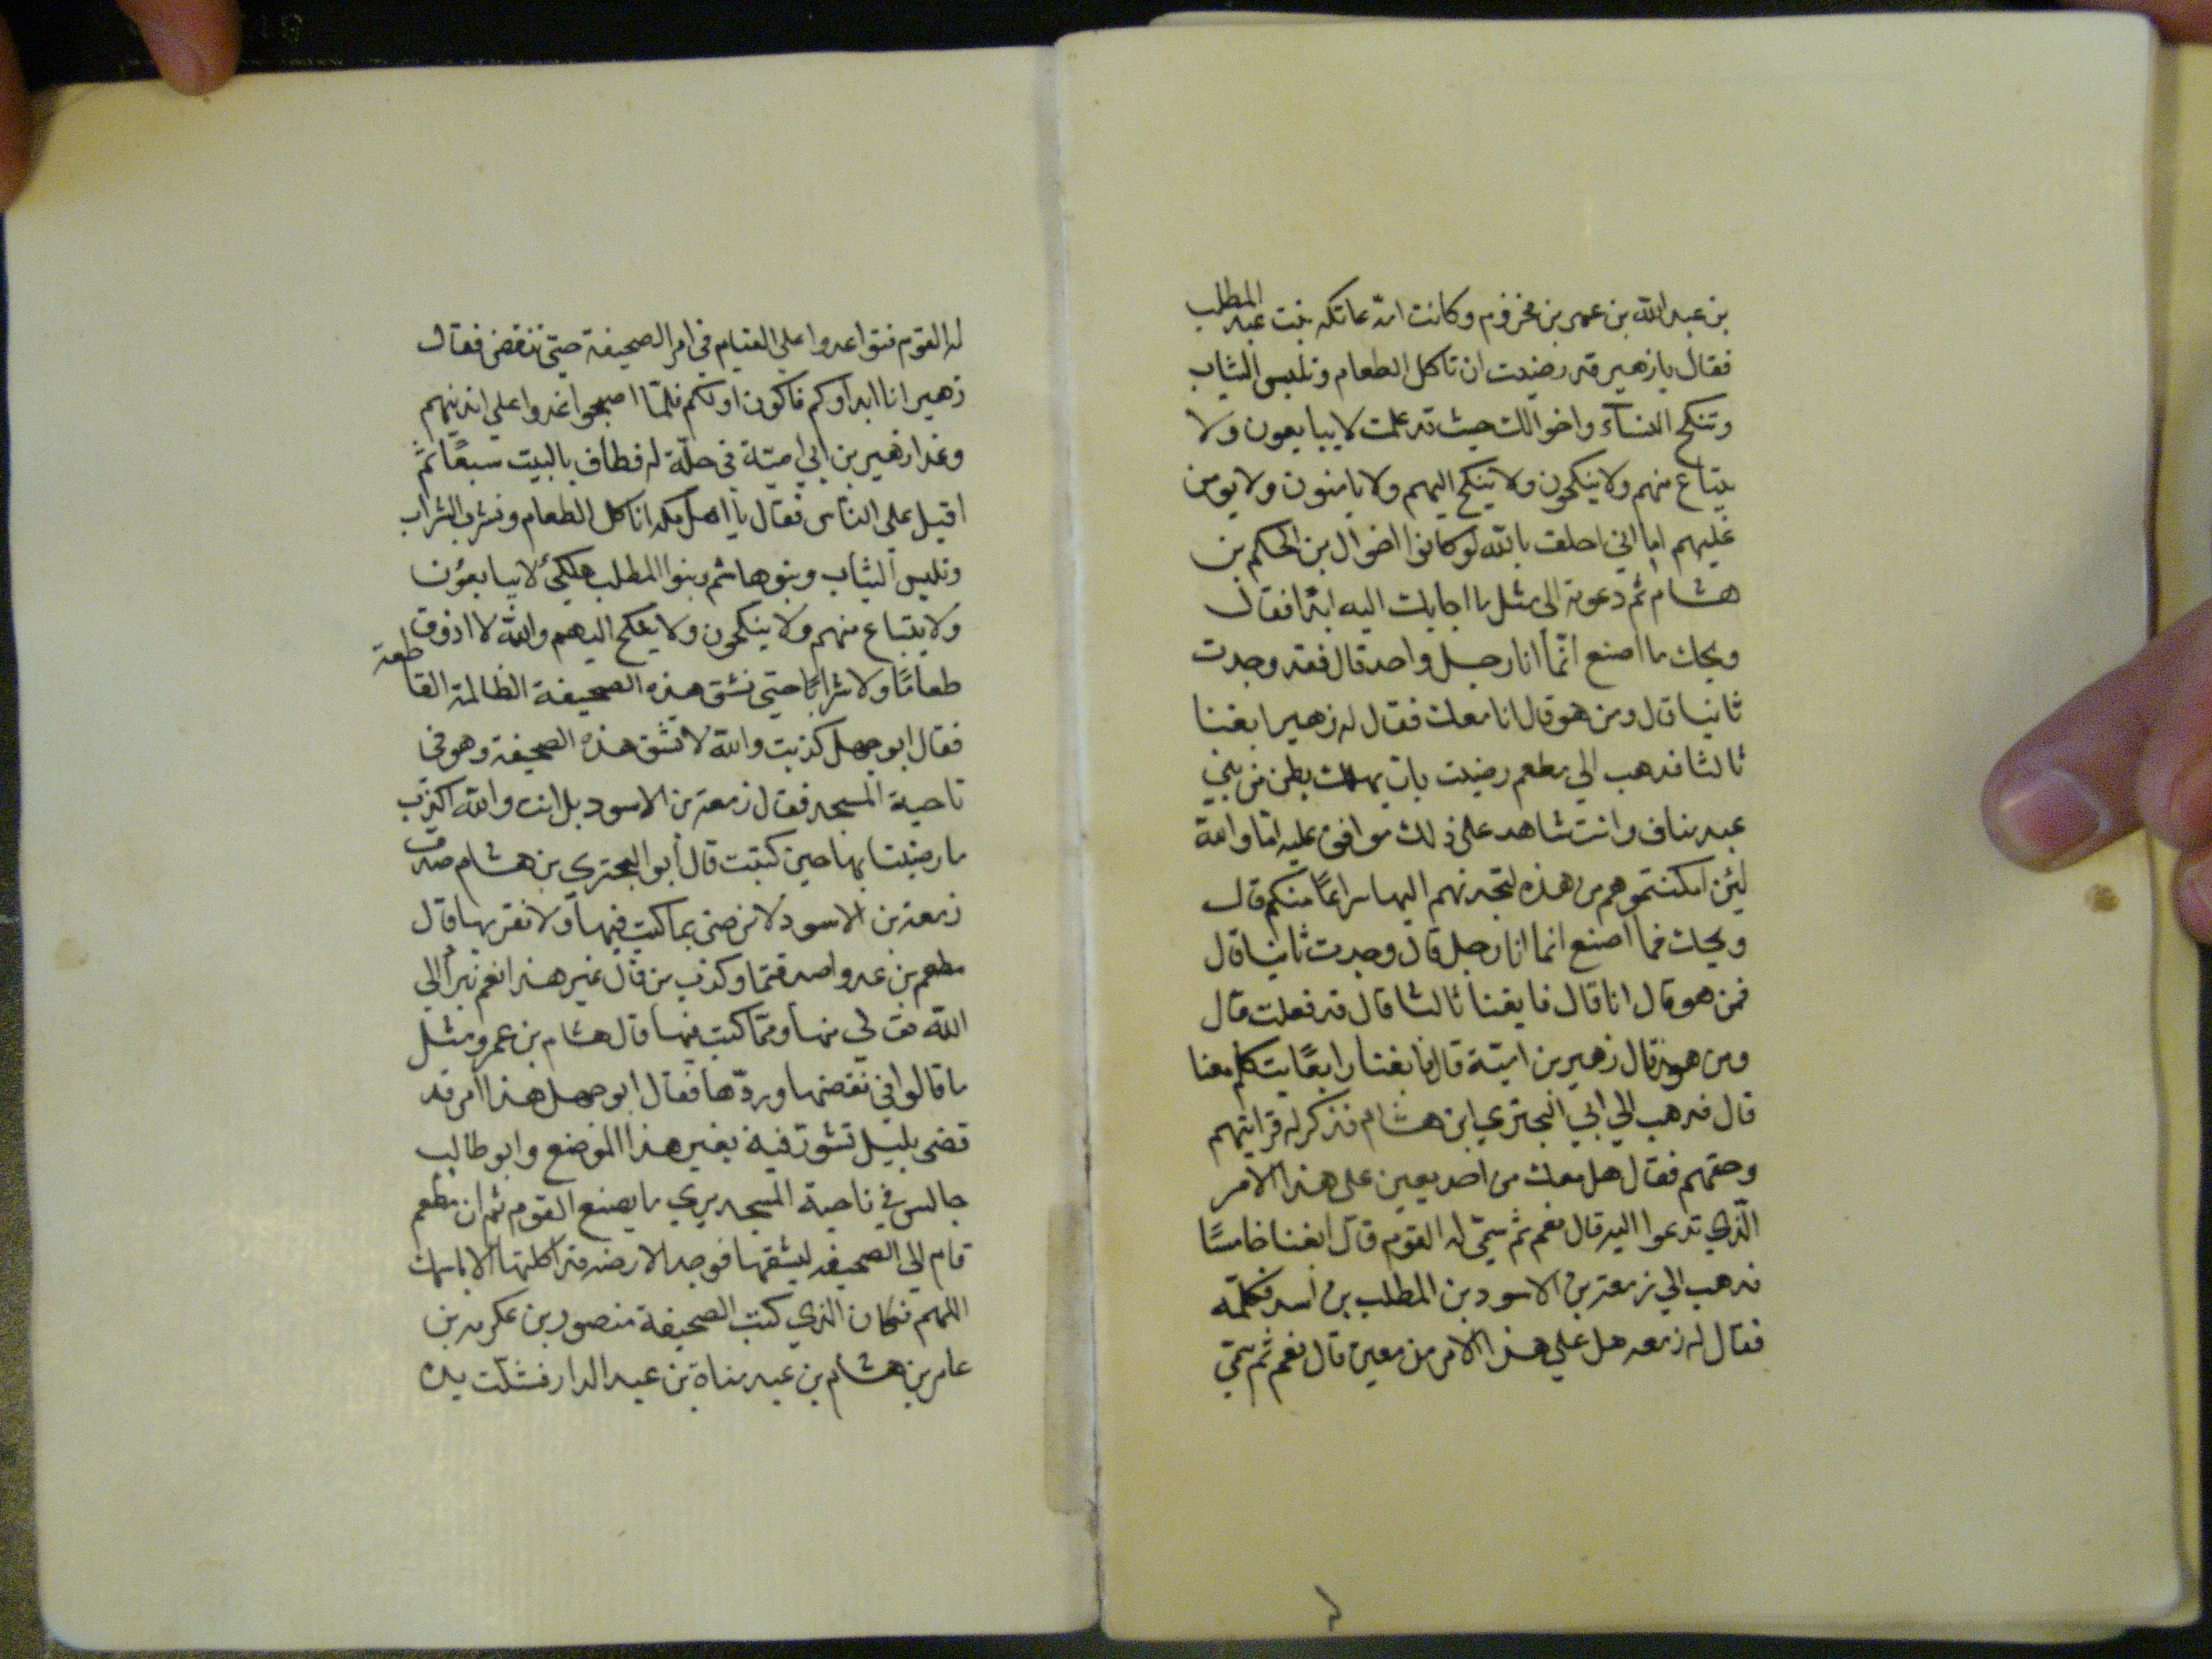 بن عبد الله بن عمر بن مخزوم وكانت امه عاتكه بنت عبد المطلب
فقال يا زهير قد رضيت ان تاكل الطعام وتلبس الثياب
وتنكح النساء واخوالك حيث قد علمت لا يبايعون ولا
يبتاع منهم ولا ينكحون ولا ينكح اليهم ولا يامنون ولا يومن
عليهم اما اني احلف بالله لو كانوا اخوال بن الحكم بن
هشام ثم دعوته الي مثل ما اجابك اليه ابدا فقال
ويحك ما اصنع انما انا رجل واحد قال فقد وجدت
ثانيا قال ومن هو قال انا معك فقال له زهير ابغنا
ثالثا فذهب الي مطعم رضيت بان يهلك بطن من بني
عبد مناف وانت شاهد علي ذلك موافق عليه اما والله
ليئن امكنتموهم من هذه لتجدنهم اليها سراعا منكم قال
ويحك فما اصنع انما انا رجل قال وجدت ثانيا قال
فمن هو قال انا قال فابغنا ثالثا قال قد فعلت قال
ومن هو قال زهير بن امية قال فابغنا رابعا يتكلم معنا
قال فذهب الي ابي البحتري ابن هشام فذكر له قرابتهم
وحقهم فقال هل معك من احد يعين علي هذا الامر
الذي تدعوا اليه قال نعم ثم سمي له القوم قال ابغنا خامسا
فذهب الي زمعة بن الاسود بن المطلب بن اسد فكلمه
فقال له زمعه هل علي هذا الامر من معين قال نعم ثم سمي
له القوم فتواعدوا علي القيام في امر الصحيفة حتي تنقض فقال
زهير انا ابداوكم فاكون اولكم فلما اصبحوا غدوا علي انديتهم
وغدا زهير بن ابي امية في حلة له فطاف بالبيت سبعا ثم
اقبل علي الناس فقال يا اهل مكه اناكل الطعام ونشرب الشراب
ونلبس الثياب وبنو هاشم وبنوا المطلب هلكئ لا يبايعون
ولا يبتاع منهم ولا ينكحون ولا ينكح اليهم والله لا اذوق
طعاما ولا شرابا حتي نشق هذه الصحيفة الظالمة القاطعة
فقال ابو جهل كذبت والله لا تشق هذه الصحيفة وهو في
ناحية المسجد فقال زمعة بن الاسود بل انت والله اكذب
ما رضينا بها حين كتبت قال أبو البحتري بن هشام صدق
زمعة بن الاسود لا نرضي بما كتب فيها ولا نقر بها قال
مطعم بن عدي صدقتما وكذب من قال غير هذا نعم نبرأ الي
الله تعالي منها ومما كتب فيها قال هشام بن عمرو مثل
ما قالوا في نقضها وردها فقال ابو جهل هذا امر قد
قضي بليل تشوور فيه بغير هذا الموضع وابو طالب
جالس في ناحية المسجد يري ما يصنع القوم ثم ان مطعم
قام الي الصحيفه ليشقها فوجد الارضه قد اكلتها الا باسمك
اللهم فكان الذي كتب الصحيفة منصور بن عكرمه بن
عامر بن هشام بن عبد مناة بن عبد الدار فشلت يده